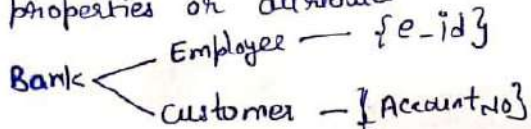 properties or
Employee — {e_id}
Bank
Customer — {AccountNo}